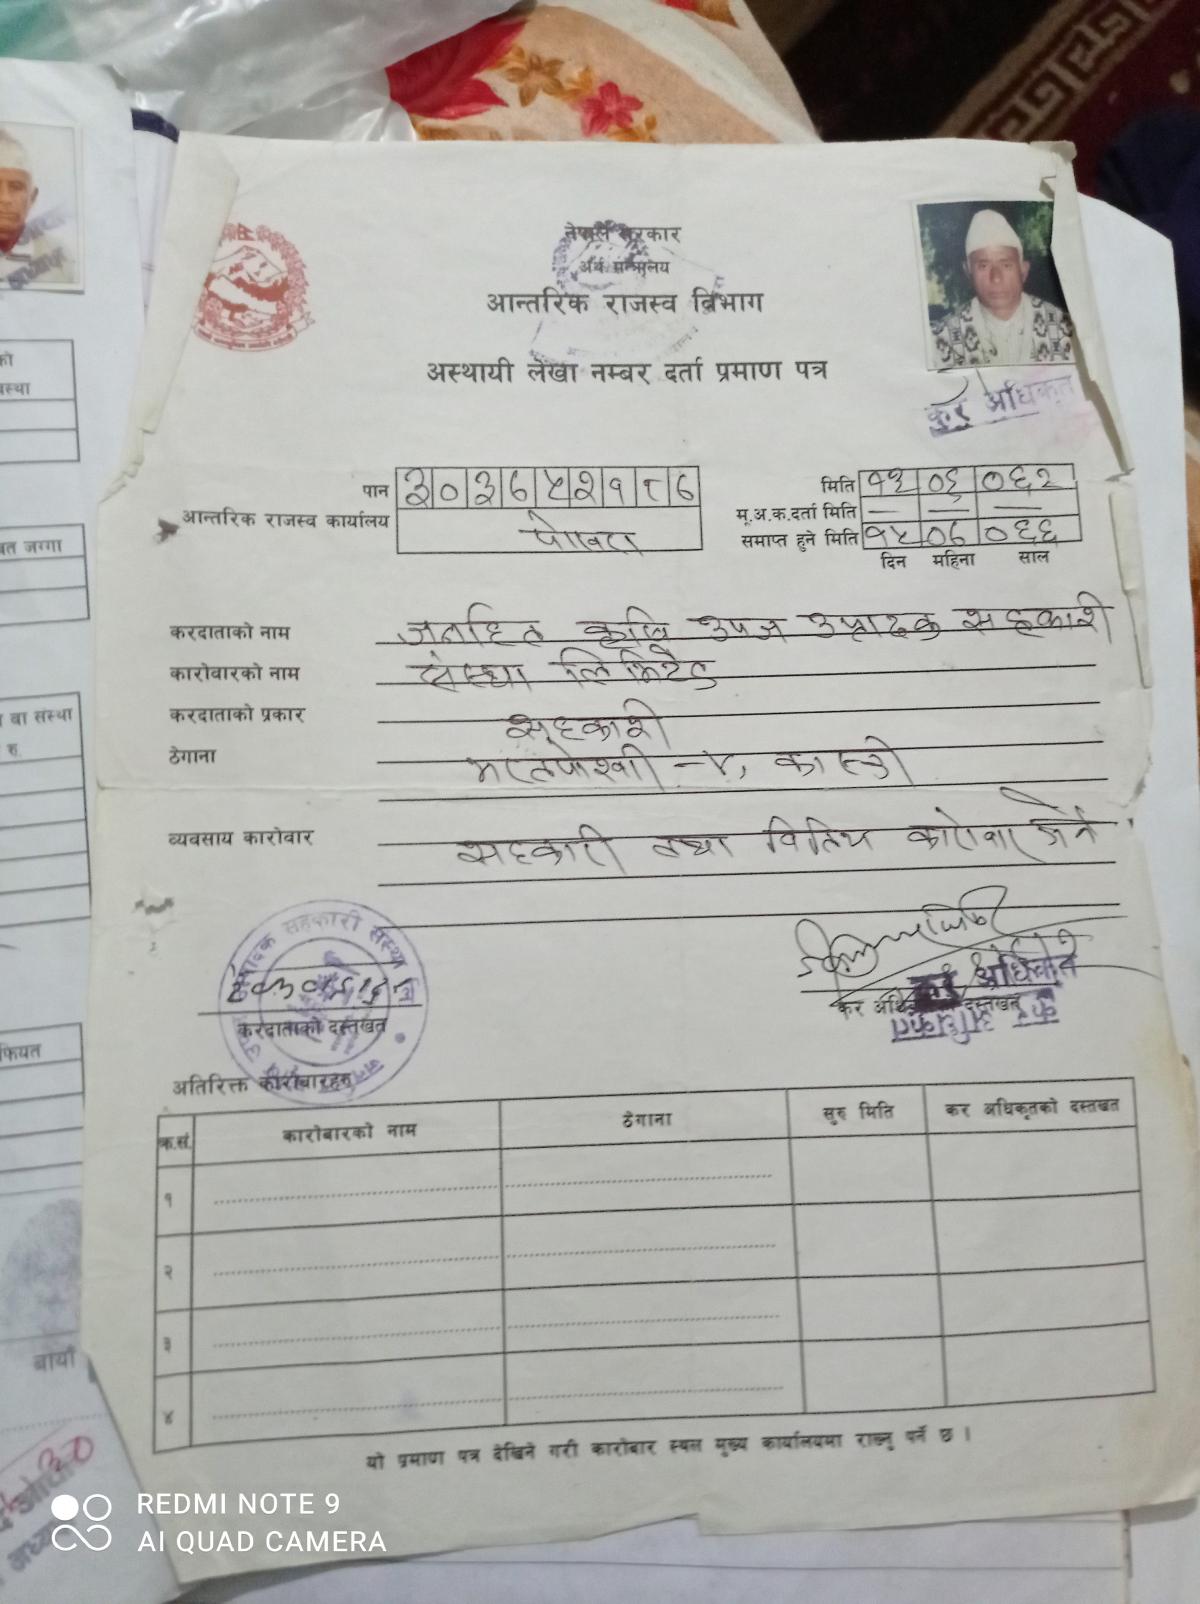 नेपाल सरकार
अर्थ मन्त्रालय
आन्तरिक राजस्व विभाग
अस्थायी लेखा नम्बर दर्ता प्रमाण पत्र
कर अधिकृत
पान
मिति १३ ०६ ०६२
आन्तरिक राजस्व कार्यालय पोखरा
मू.अ.क.दर्ता मिति — — —
समाप्त हुने मिति १५ ०७ ०६६
दिन महिना साल
करदाताको नाम जनहित कृषि उपज उत्पादक सहकारी
कारोवारको नाम संस्था लिमिटेड
करदाताको प्रकार सहकारी
ठेगाना भरतपोखरी -४, कास्की
व्यवसाय कारोवार सहकारी तथा वित्तिय कारोवार गर्ने
करदाताको दस्तखत
कर अधिकृत
दस्तखत
अतिरिक्त कारोबारहरु
क्र.सं. कारोबारको नाम ठेगाना सुरु मिति कर अधिकृतको दस्तखत
१
२
३
४
यो प्रमाण पत्र देखिने गरी कारोबार स्थल मुख्य कार्यालयमा राख्नु पर्ने छ ।
को
वस्था
जग्गा
वा संस्था
रु.
फियत
बायाँ
REDMI NOTE 9
AI QUAD CAMERA